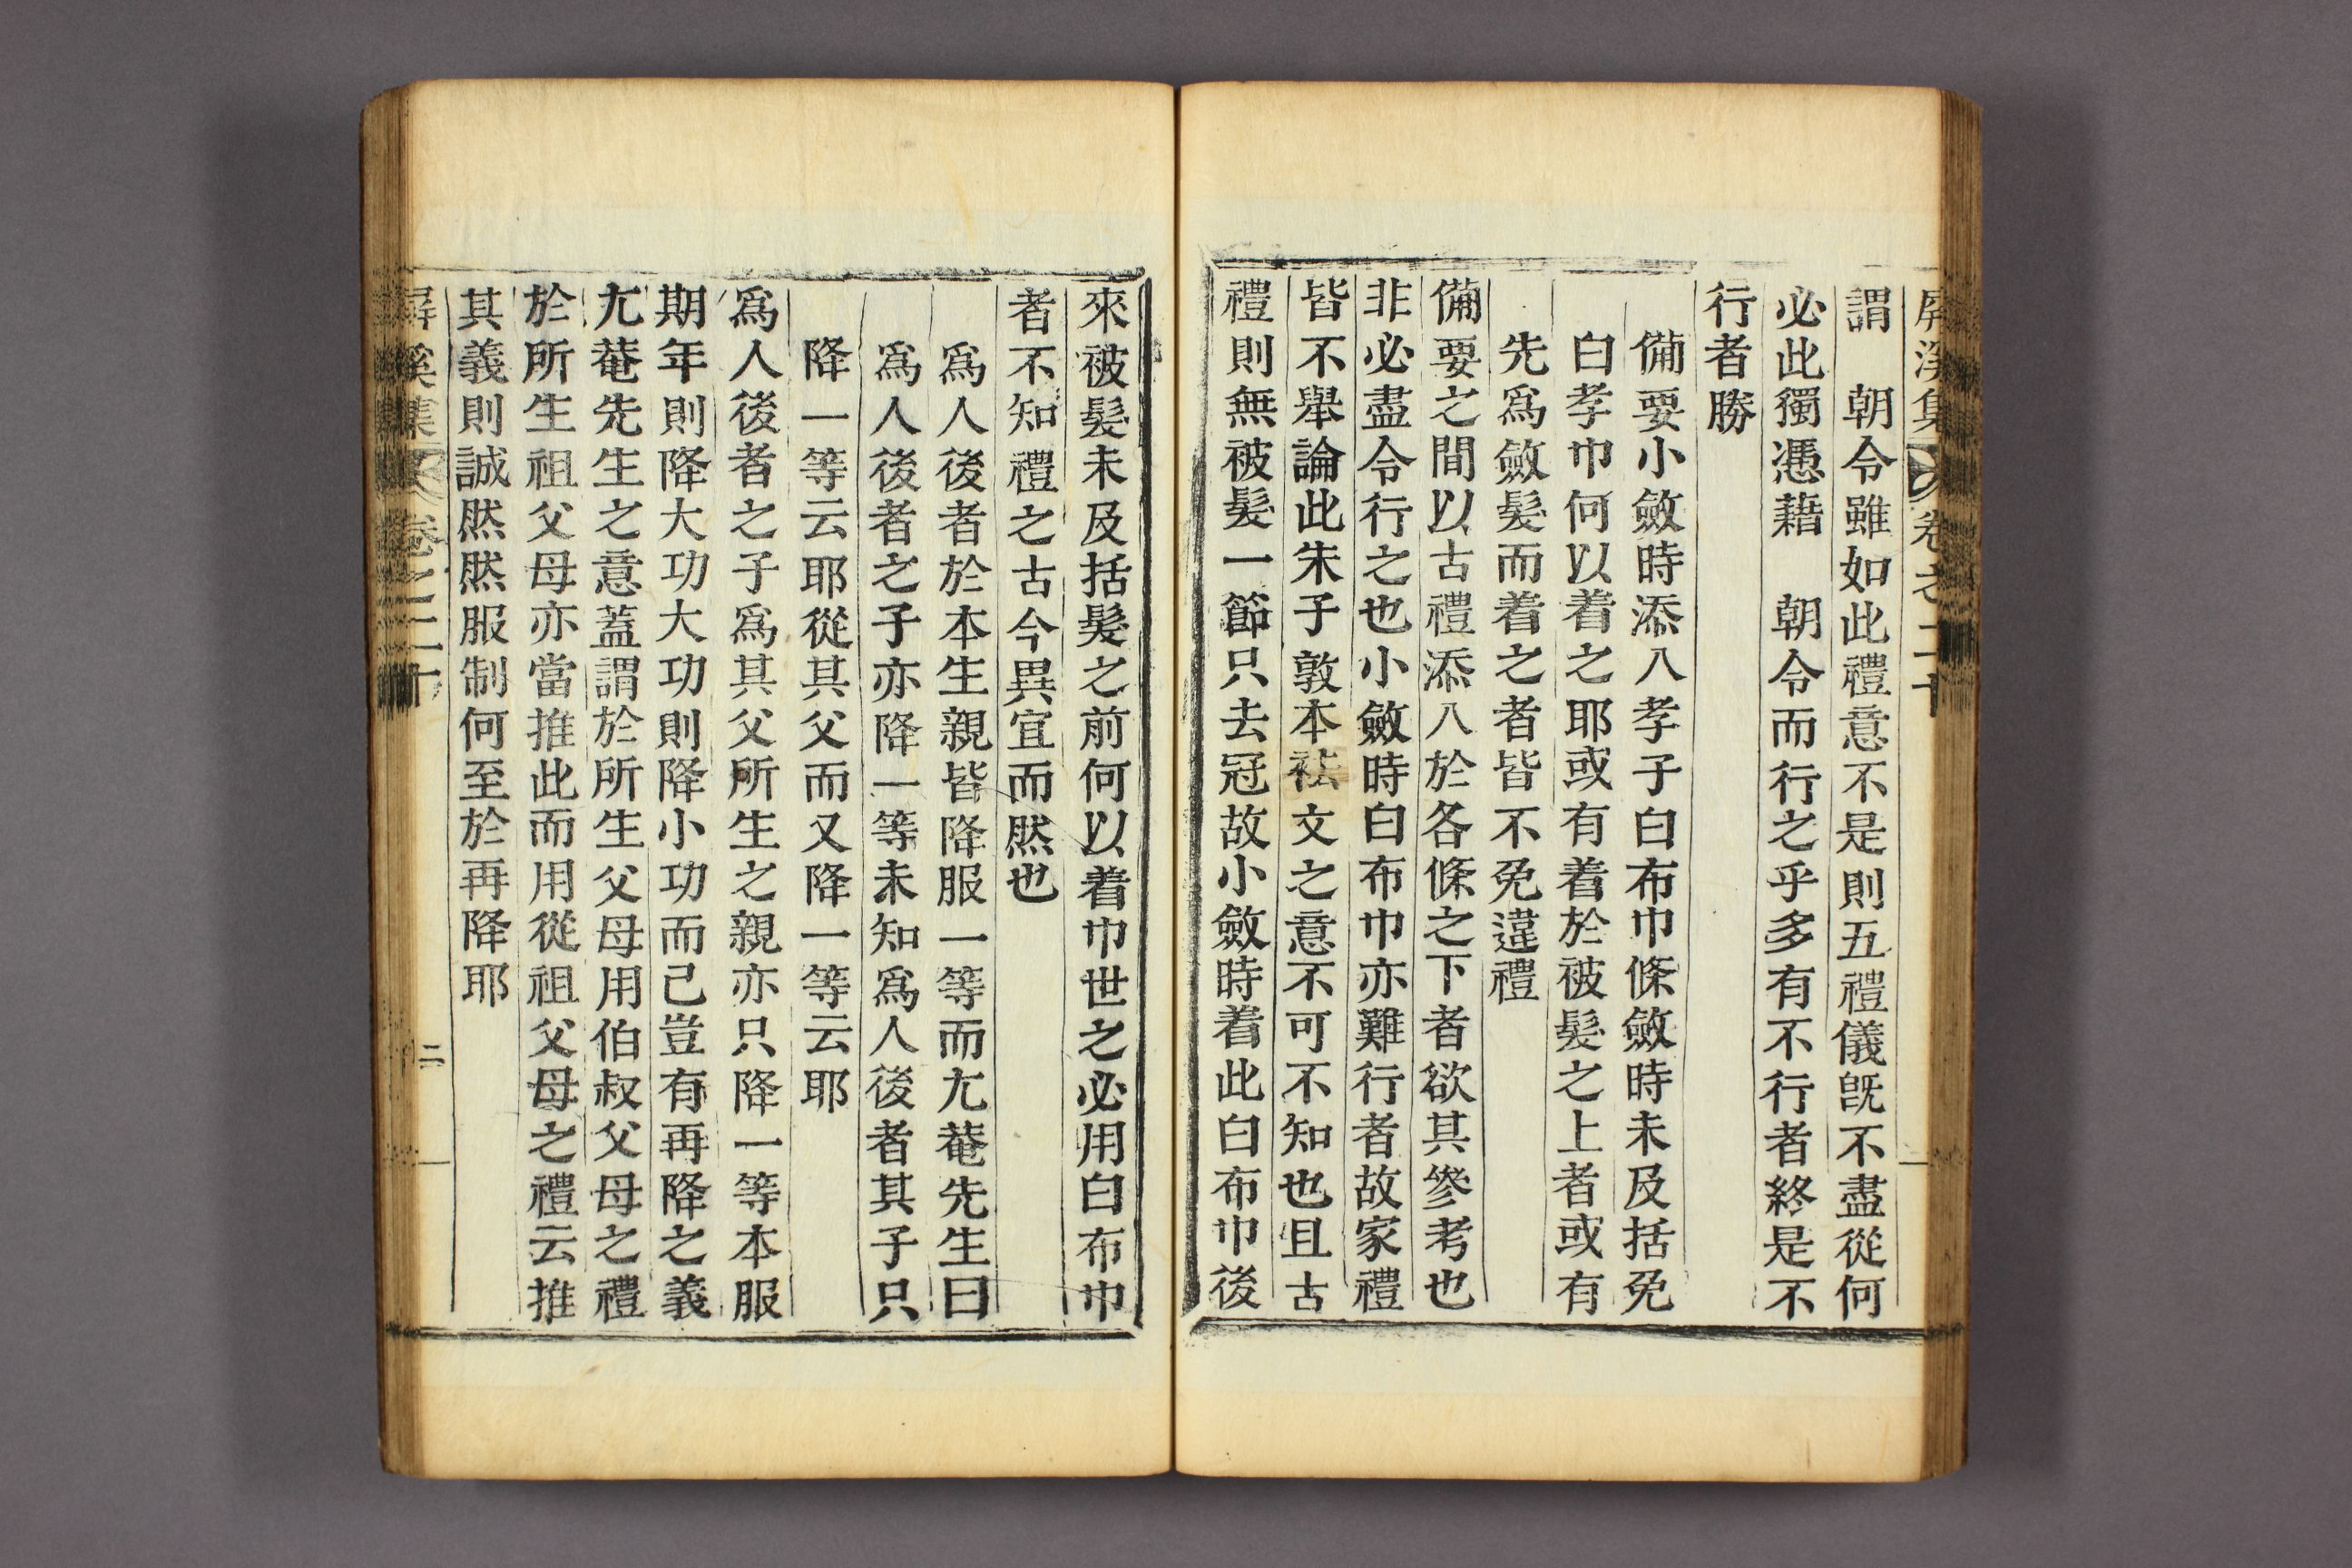 屛溪集 卷之二十
謂 朝令雖如此禮意不是則五禮儀旣不盡從何
必此獨憑藉 朝令而行之乎多有不行者終是不
行者勝
備要小斂時添入孝子白布巾條斂時未及括免
白孝巾何以着之耶或有着於被髮之上者或有
先爲斂髮而着之者皆不免違禮
備要之間以古禮添入於各條之下者欲其參考也
非必盡令行之也小斂時白布巾亦難行者故家禮
皆不擧論此朱子敦本祛文之意不可不知也且古
禮則無被髮一節只去冠故小斂時着此白布巾後
來被髮未及括髮之前何以着巾世之必用白布巾
者不知禮之古今異宜而然也
爲人後者於本生親皆降服一等而尤菴先生曰
爲人後者之子亦降一等未知爲人後者其子只
降一等云耶從其父而又降一等云耶
爲人後者之子爲其父所生之親亦只降一等本服
期年則降大功大功則降小功而已豈有再降之義
尤菴先生之意蓋謂於所生父母用伯叔父母之禮
於所生祖父母亦當推此而用從祖父母之禮云推
其義則誠然然服制何至於再降耶
屛溪集 卷之二十 二